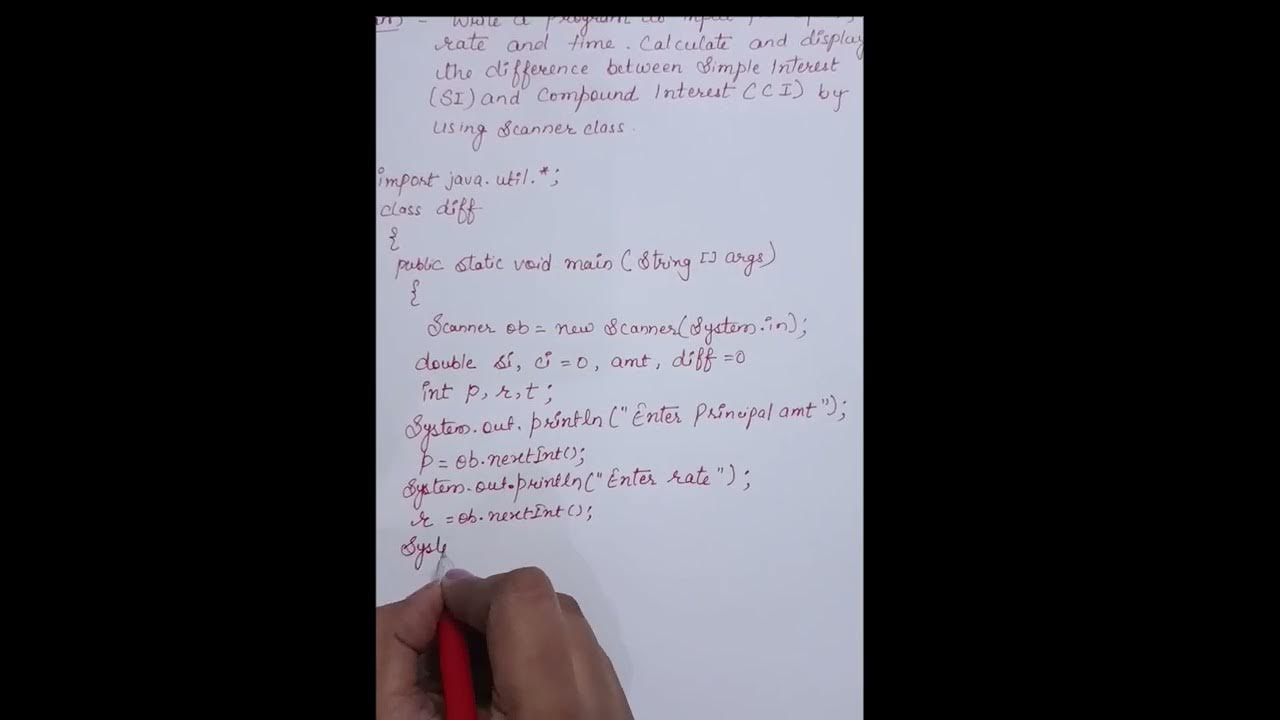 Write a program to input
rate and time. Calculate and display
the difference between Simple Interest
(SI) and Compound Interest (CI) by
using Scanner class.
import java.util.*;
class diff
{
public static void main (String [] args)
{
Scanner ob = new Scanner(System.in);
double si, ci = 0, amt, diff = 0
int p, r, t;
System.out.println ("Enter Principal amt");
p = ob.nextInt();
System.out.println("Enter rate");
r = ob.nextInt();
Syst